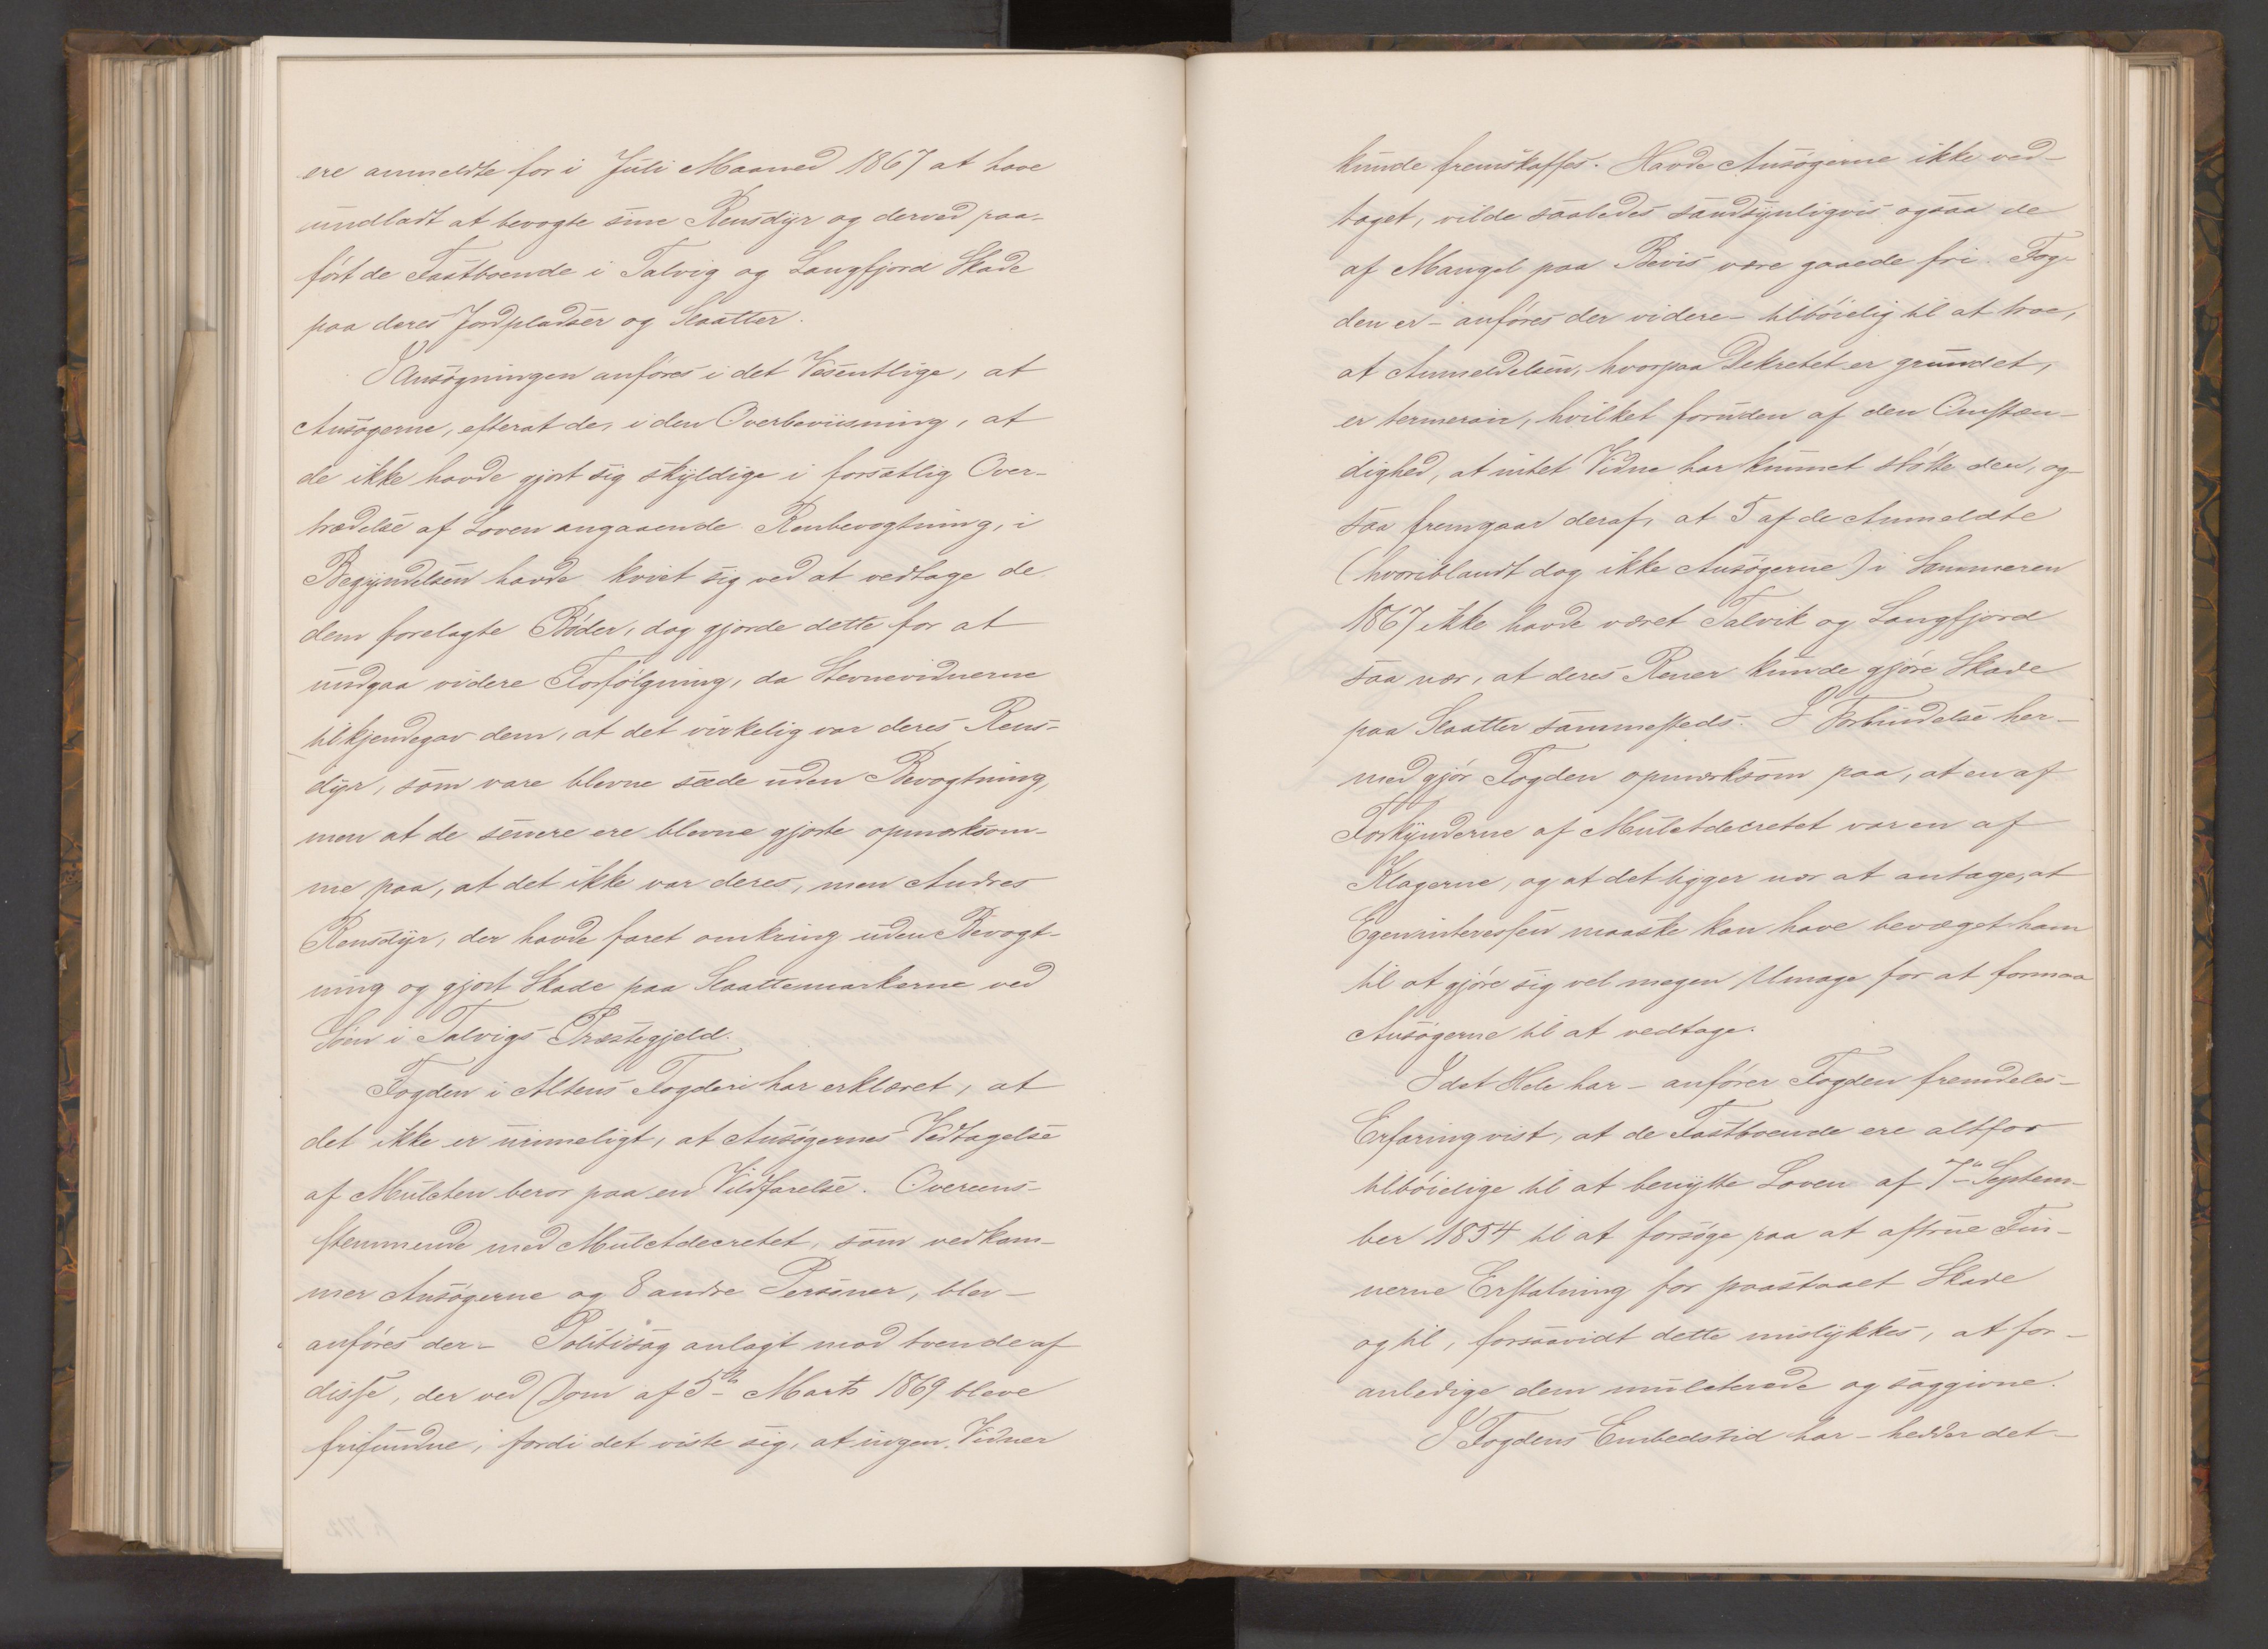 ere anmeldte for i Juli Maaned 1867 at have
undladt at bevogte sine Rensdyr og derved paa-
ført de Fastboende i Talvig og Langfjord Skade
paa deres Jordpladser og Slaatter.
I Ansøgningen anføres i det Væsentlige, at
Ansøgerne, efterat de, i den Overbeviisning, at
de ikke havde gjort sig skyldige i forsætlig Over-
trædelse af Loven angaaende Renbevogtning, i
Begyndelsen havde kviet sig ved at vedtage de
dem forelagte Bøder, dog gjorde dette for at
undgaa videre Forfølgning, da Stevnevidnerne
tilkjendegav dem, at det virkelig var deres Rens-
dyr, som vare blevne seede uden Bevogtning,
men at de senere ere blevne gjorte opmærksom-
me paa, at det ikke var deres, men Andres
Rensdyr, der havde faret omkring uden Bevogt-
ning og gjort Skade paa Slaattemarkerne ved
Søen i Talvigs Præstegjeld.
Fogden i Altens Fogderi har erklæret, at
det ikke er urimeligt, at Ansøgernes Vedtagelse
af Mulcten beror paa en Vildfarelse. Overeens-
stemmende med Mulctdecretet, som vedkom-
mer Ansøgerne og 8 andre Personer, blev -
anføres der - Politisag anlagt mod tvende af
disse, der ved Dom af 5te Marts 1869 bleve
frifundne, fordi det viste sig, at ingen Vidner
kunde fremskaffes. Havde Ansøgerne ikke ved-
taget, vilde saaledes sandsynligvis ogsaa de
af Mangel paa Bevis være gaaede fri. Fog-
den er - anføres der videre - tilbøielig til at troe,
at Anmeldelsen, hvorpaa Dekretet er grundet,
er termerair, hvilket foruden af den Omstæn-
dighed, at intet Vidne har kunnet støtte den, og-
saa fremgaar deraf, at 5 af de Anmeldte
(hvoriblandt dog ikke Ansøgerne) i Sommeren
1867 ikke havde været Talvik og Langfjord
saa nær, at deres Rener kunde gjøre Skade
paa Slaatter sammesteds. I Forbindelse her-
med gjør Fogden opmærksom paa, at en af
Forkynderne af Mulctdecretet var en af
Klagerne, og at det ligger nær at antage, at
Egeninteressen maaske kan have bevæget ham
til at gjøre sig vel megen Umage for at formaa
Ansøgerne til at vedtage.
I det Hele har - anfører Fogden fremdeles -
Erfaring vist, at de Fastboende ere altfor
tilbøielige til at benytte Loven af 7de Septem-
ber 1854 til at forsøge paa at aftrue Fin-
nerne Erstatning for paastaaet Skade
og til, forsaavidt dette mislykkes, at for-
anledige dem mulcterede og saggivne.
I Fogdens Embedstid har - hedder det -